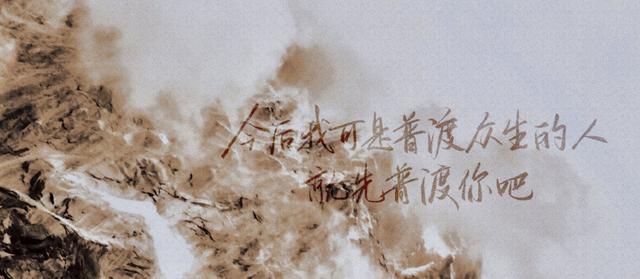 今后我可是普渡众生的人
就先普渡你吧